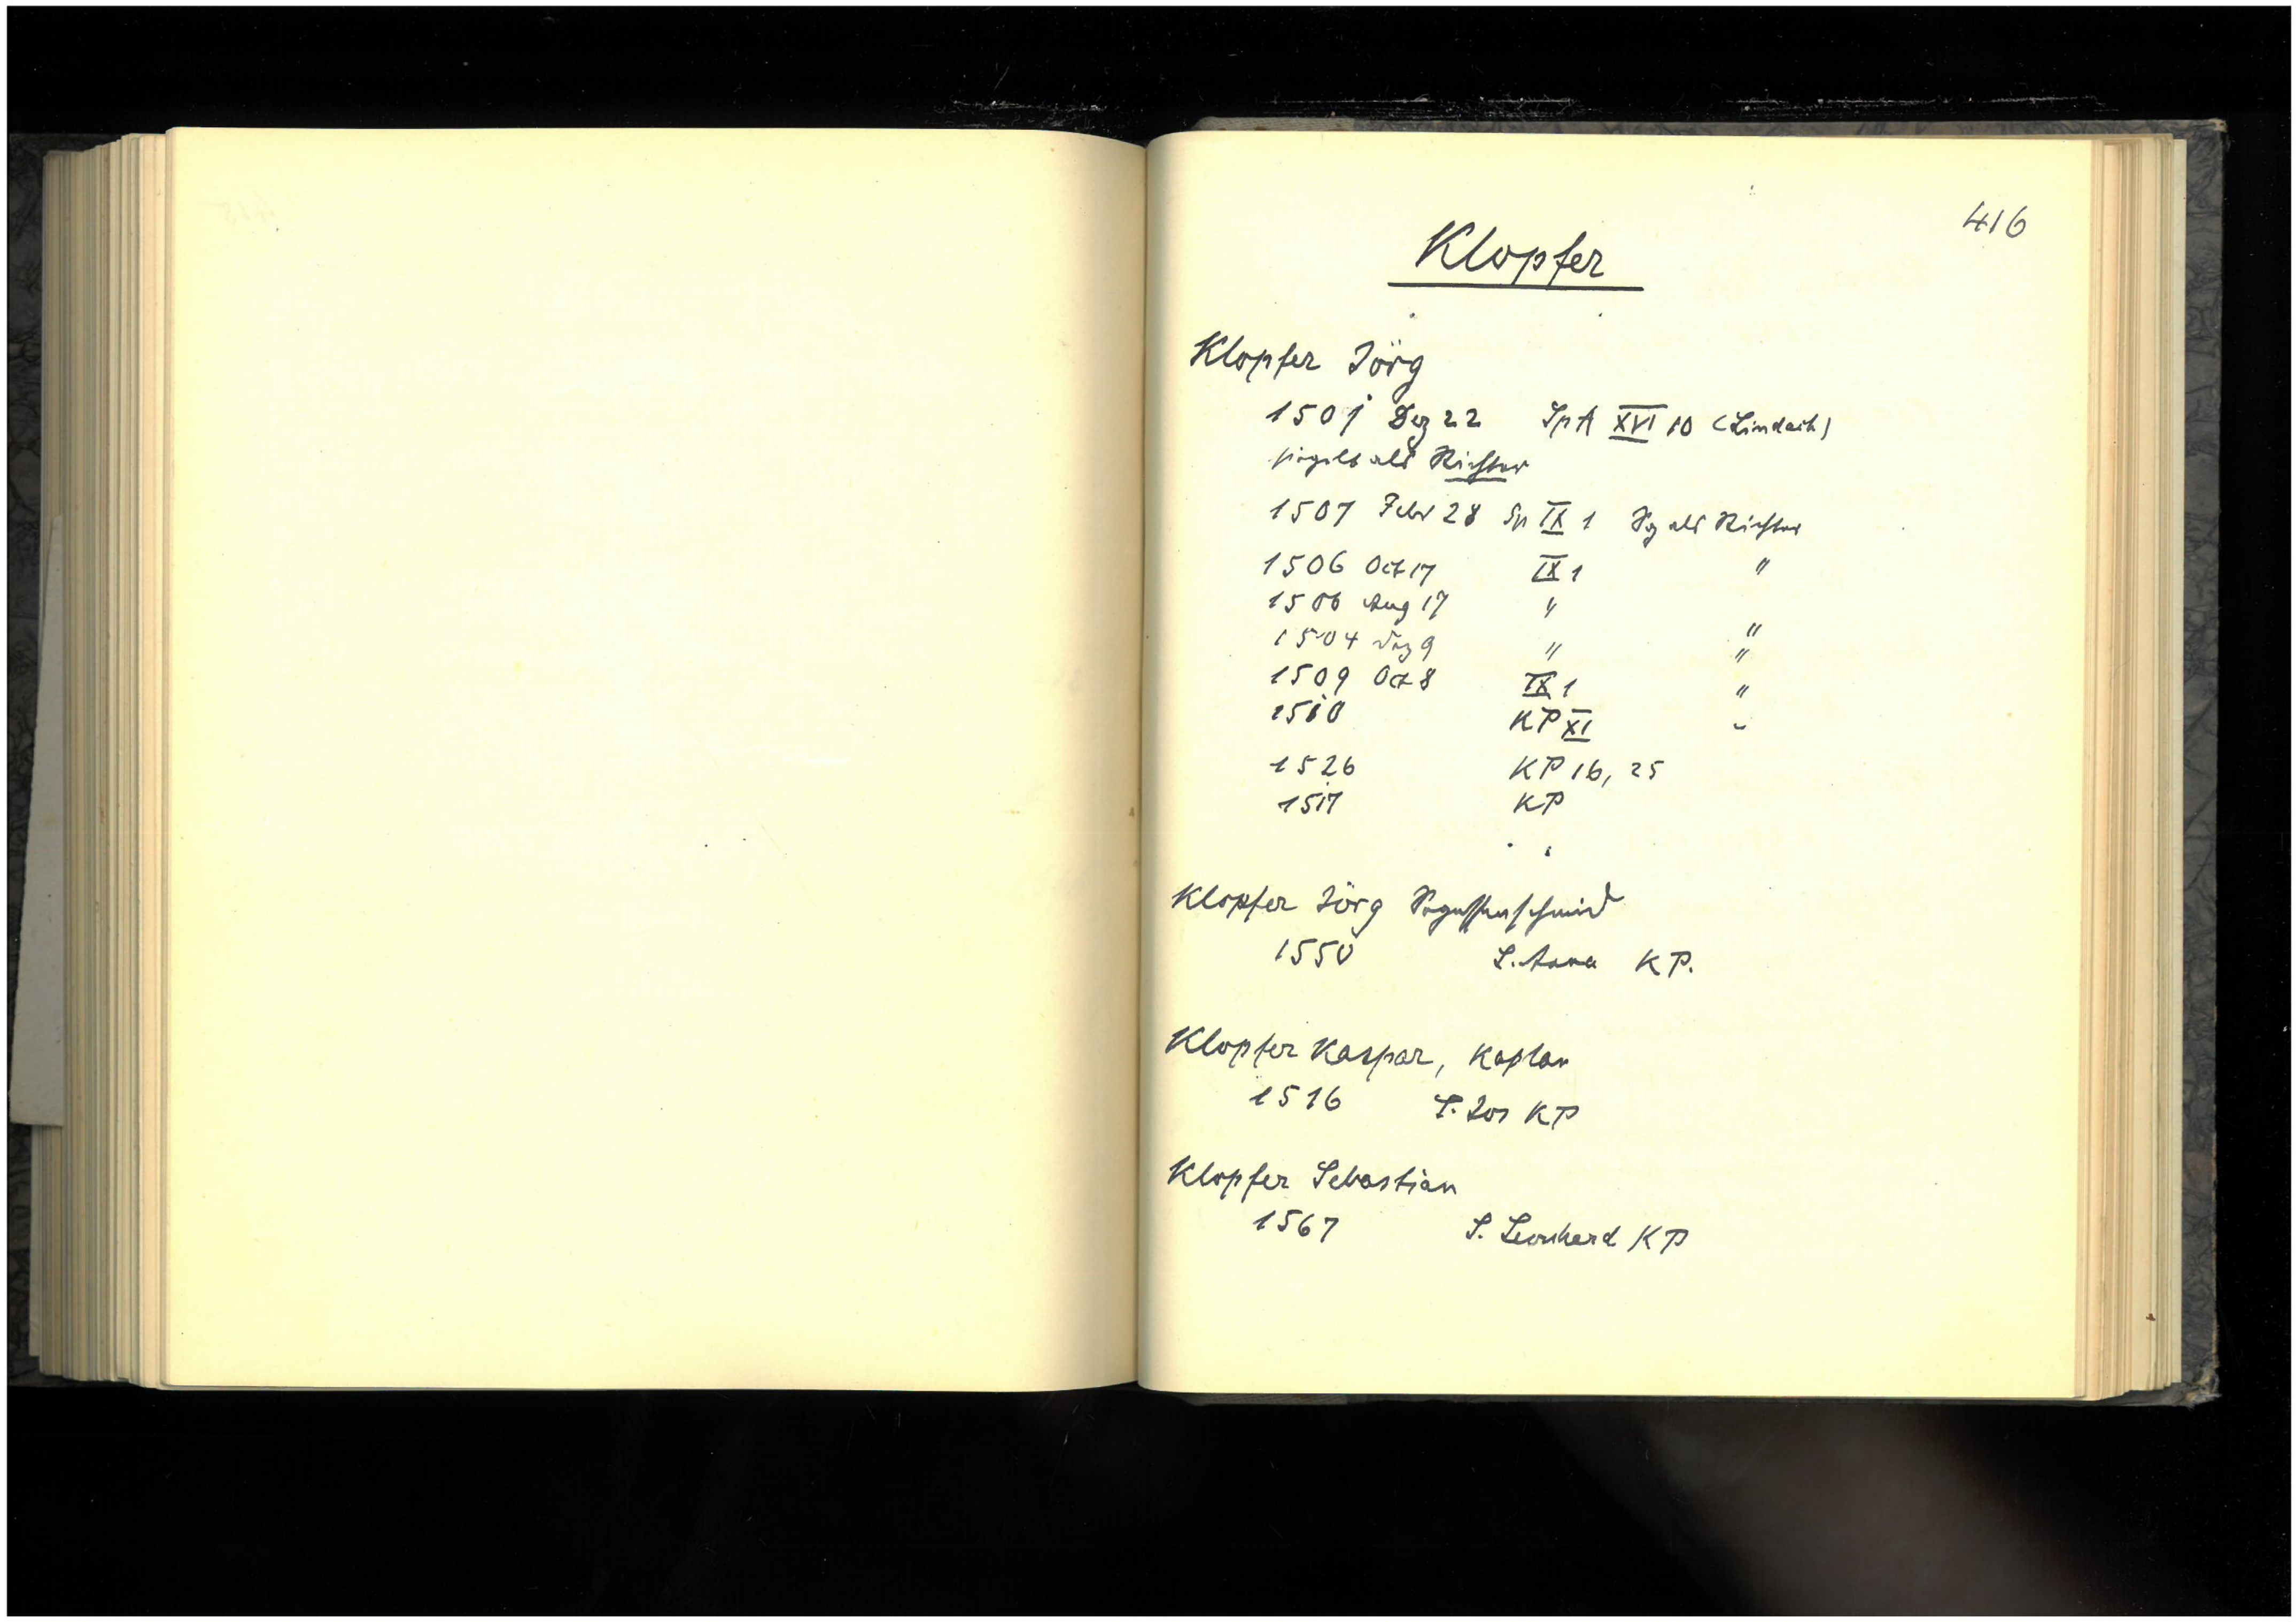 416
Klopfer
Klopfer Jörg
1501 Dez 22 Sp A XVI 10 (Lindach)
siegelt als Richter
1507 Febr 28 Sp IX 1 Sg als Richter
1506 Oct 17 IX 1 "
1506 Aug 17 "
1504 Dez 9 " "
"
1509 Oct 8 IX 1 "
1510 KP XI "
1526 KP 16, 25
1517 KP
Klopfer Jörg
1550 S. Anna KP.
Klopfer Kaspar, Kaplan
1516 S. Jos KP
Klopfer Sebastian
1567 S. Leonhard KP